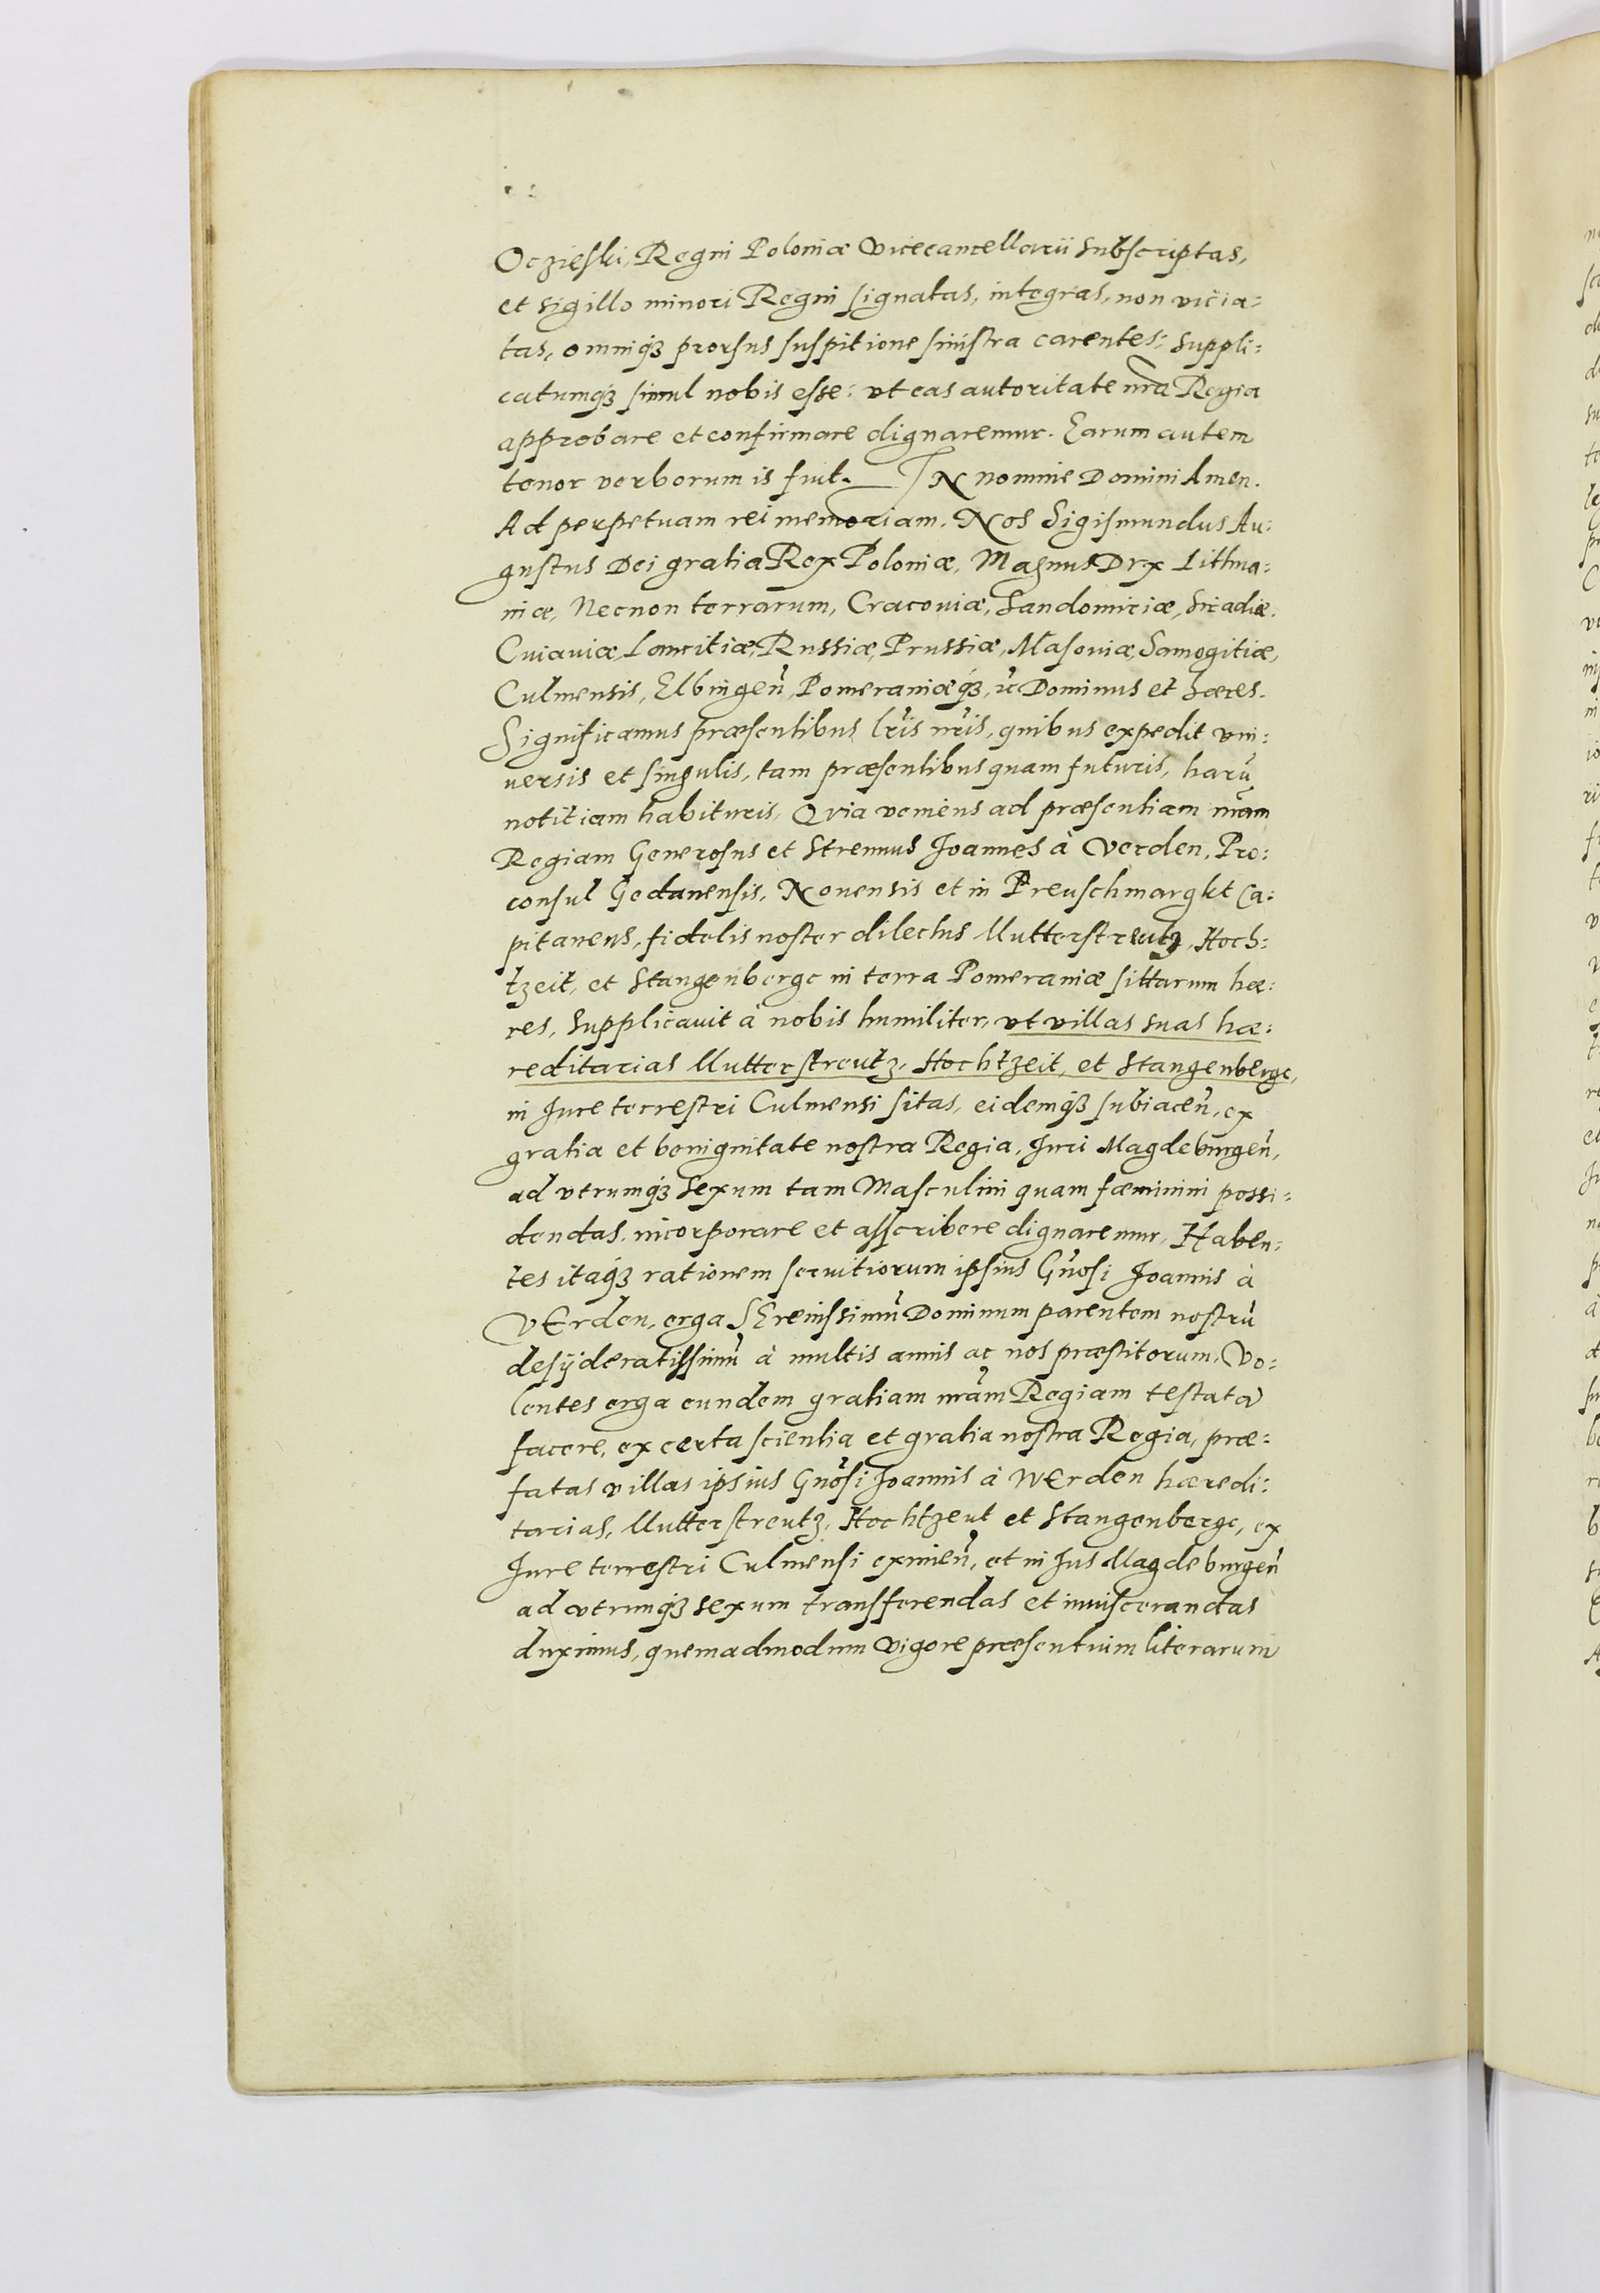 Oczieski, Regni Poloniæ Vicecancellarii subscriptas,
et sigillo minori Regni signatas, integras, non vicia=
tas, omniq3 prorsus suspitione sinistra carentes: Suppli=
catumq3 simul nobis esse: vt eas autoritate nr̃a Regia
approbare et confirmare dignaremur. Earum autem
tenor verborum is fuit. IN nomine Domini Amen.
Ad perpetuam rei memoriam. Nos Sigismundus Au=
gustus Dei gratia Rex Poloniæ, Magnus Dux Lithua=
niæ, Necnon terrarum, Cracouiæ, Sandomiriæ, Siradiæ.
Cuiauiæ, Lancitiæ, Russiæ, Prussiæ, Masouiæ, Samogitiæ,
Culmensis, Elbingen̄, Pomeraniæq3, ꝛc̃ Dominus et hæres.
Significamus præsentibus lr̃is nr̃is, quibus expedit vni=
uersis et singulis, tam præsentibus quam futuris, harū
notitiam habituris, Qvia veniens ad præsentiam nr̃am
Regiam Generosus et Strennus Joannes à Verden, Pro=
consul Gedanensis, Nouensis et in Preuschmargkt Ca=
pitaneus, fidelis noster dilectus Mutterstreutz, Hoch=
tzeit, et Stangenberge in terra Pomeraniæ sittarum hæ=
res, supplicauit à nobis humiliter, vt villas suas hæ=
reditarias Mutterstreutz, Hochtzeit, et Stangenberge,
in Jure terrestri Culmensi sitas, eidemq3 subiacen̄, ex
gratia et benignitate nostra Regia, Juri Magdeburgen̄,
ad vtrumq3 sexum tam Masculini quam fœminini possi=
dendas, incorporare et asscribere dignaremur, Haben=
tes itaq3 rationem seruitiorum ipsius Gn̄osi Joannis à
VErden, erga SErenissimū Dominum parentem nostrū
desÿderatissimū à multis annis ac nos præstitorum, Vo=
lentes erga eundem gratiam nr̃am Regiam testatā
facere, ex certa scientia et gratia nostra Regia, præ=
fatas villas ipsius Gn̄osi Joannis à WErden hæredi=
tarias, Mutterstreutz, Hochtzeut et Stangenberge, ex
Jure terrestri Culmensi eximen̄, et in Jus Magdeburgen̄
ad vtrumq3 sexum transferendas et inuiscerandas
duximus, quemadmodum vigore præsentium literarum